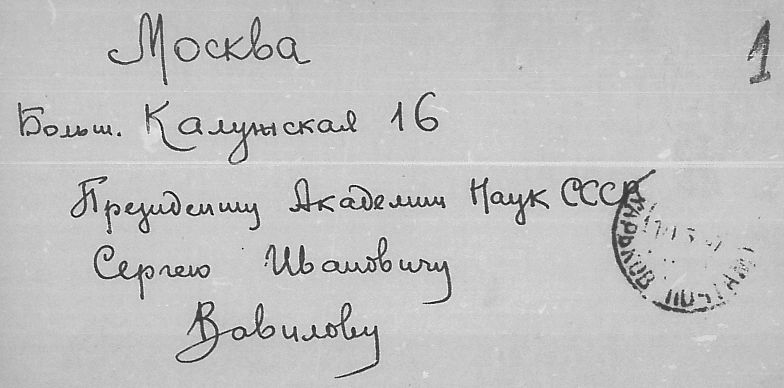 Москва
1
Больш. Калужская 16
Президенту Академии Наук СССР
Сергею Ивановичу
Вавилову
ХАРЬКОВ ПОЧТАМТ